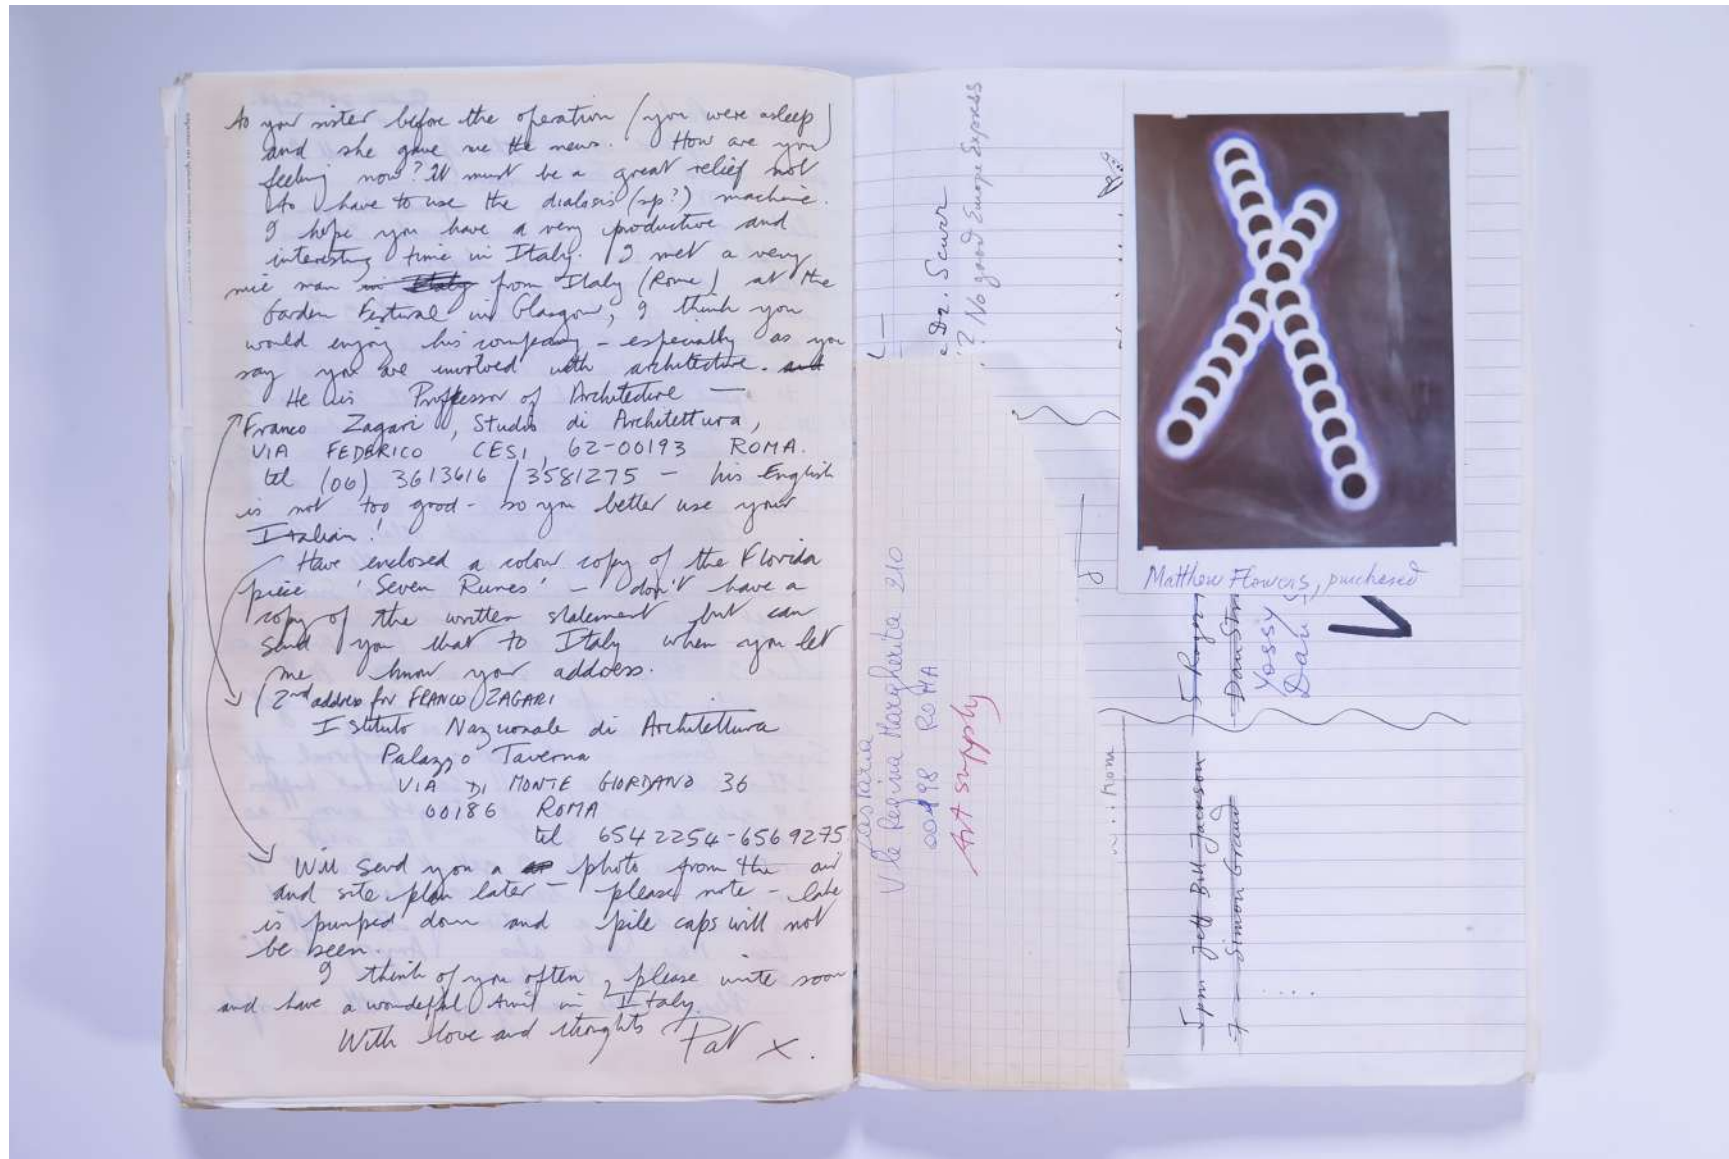 to your sister before the operation (you were asleep)
and she gave me the news. How are you
feeling now? It must be a great relief not
to have to use the dialosis (sp?) machine.
I hope you have a very productive and
interesting time in Italy. I met a very
nice man in Italy from Italy (Rome) at the
Garden Festival in Glasgow, I think you
would enjoy his company - especially as you
say you are involved with architecture. and
He is Proffessor of Architecture —
Franco Zagari, Studio di Architettura,
VIA FEDERICO CESI, 62-00193 ROMA.
tel (06) 3613616 / 3581275 - his English
is not too good - so you better use your
Italian!
Have enclosed a colour copy of the Florida
piece 'Seven Runes' - don't have a
copy of the written statement but can
send you that to Italy when you let
me know your address.
2nd address for FRANCO ZAGARI
Istituto Nazionale di Architettura
Palazzo Taverna
VIA DI MONTE GIORDANO 36
00186 ROMA
tel 6542254-6569275
Will send you a photo from the air
and site plan later - please note - lake
is pumped down and pile caps will not
be seen.
I think of you often, please write soon
and have a wonderful time in Italy.
With love and thoughts Pat X.
Dr. Scurr
!? No good Europe Express
V le Regina Margherita 210
00198 ROMA
Art supply
Matthew Flowers, purchased
Yossy
Dan
5pm Jeff Bill Jackson
7 - Simon Grand